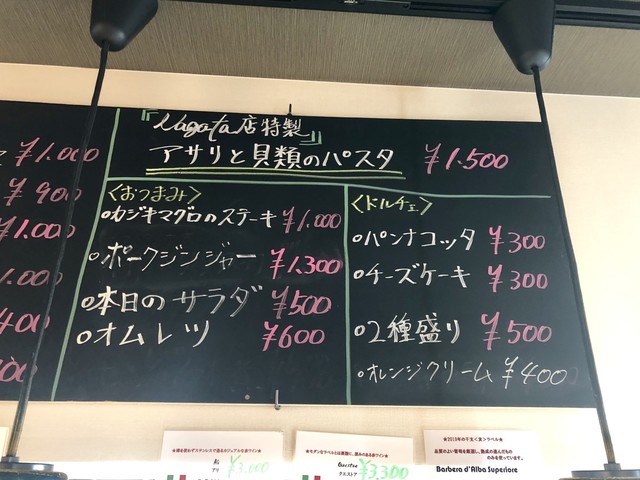 ¥1.000
¥900
¥1.000
1.000
400
『Nagata店特製』
アサリと貝類のパスタ ¥1.500
〈おつまみ〉
・カジキマグロのステーキ ¥1.000
・ポークジンジャー ¥1.300
・本日のサラダ ¥500
・オムレツ ¥600
〈ドルチェ〉
・パンナコッタ ¥300
・チーズケーキ ¥300
・2種盛り ¥500
・オレンジクリーム ¥400
¥3,000
¥3,300
Barbera d'Alba Superiore